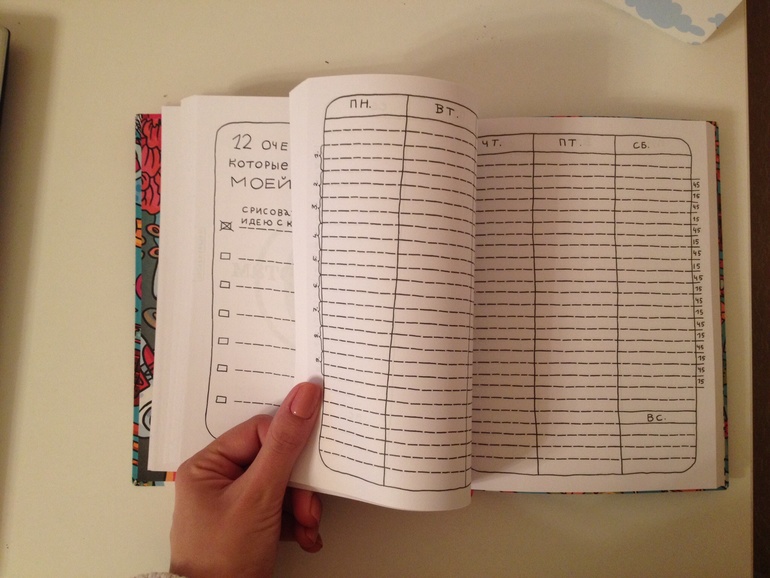 12 ОЧЕ
КОТОРЫЕ
МОЕЙ
СРИСОВА
ИДЕЮ С К
ПН.
ВТ.
ЧТ.
ПТ.
СБ.
45
15
45
15
45
15
45
15
45
15
45
15
45
15
45
15
45
15
ВС.